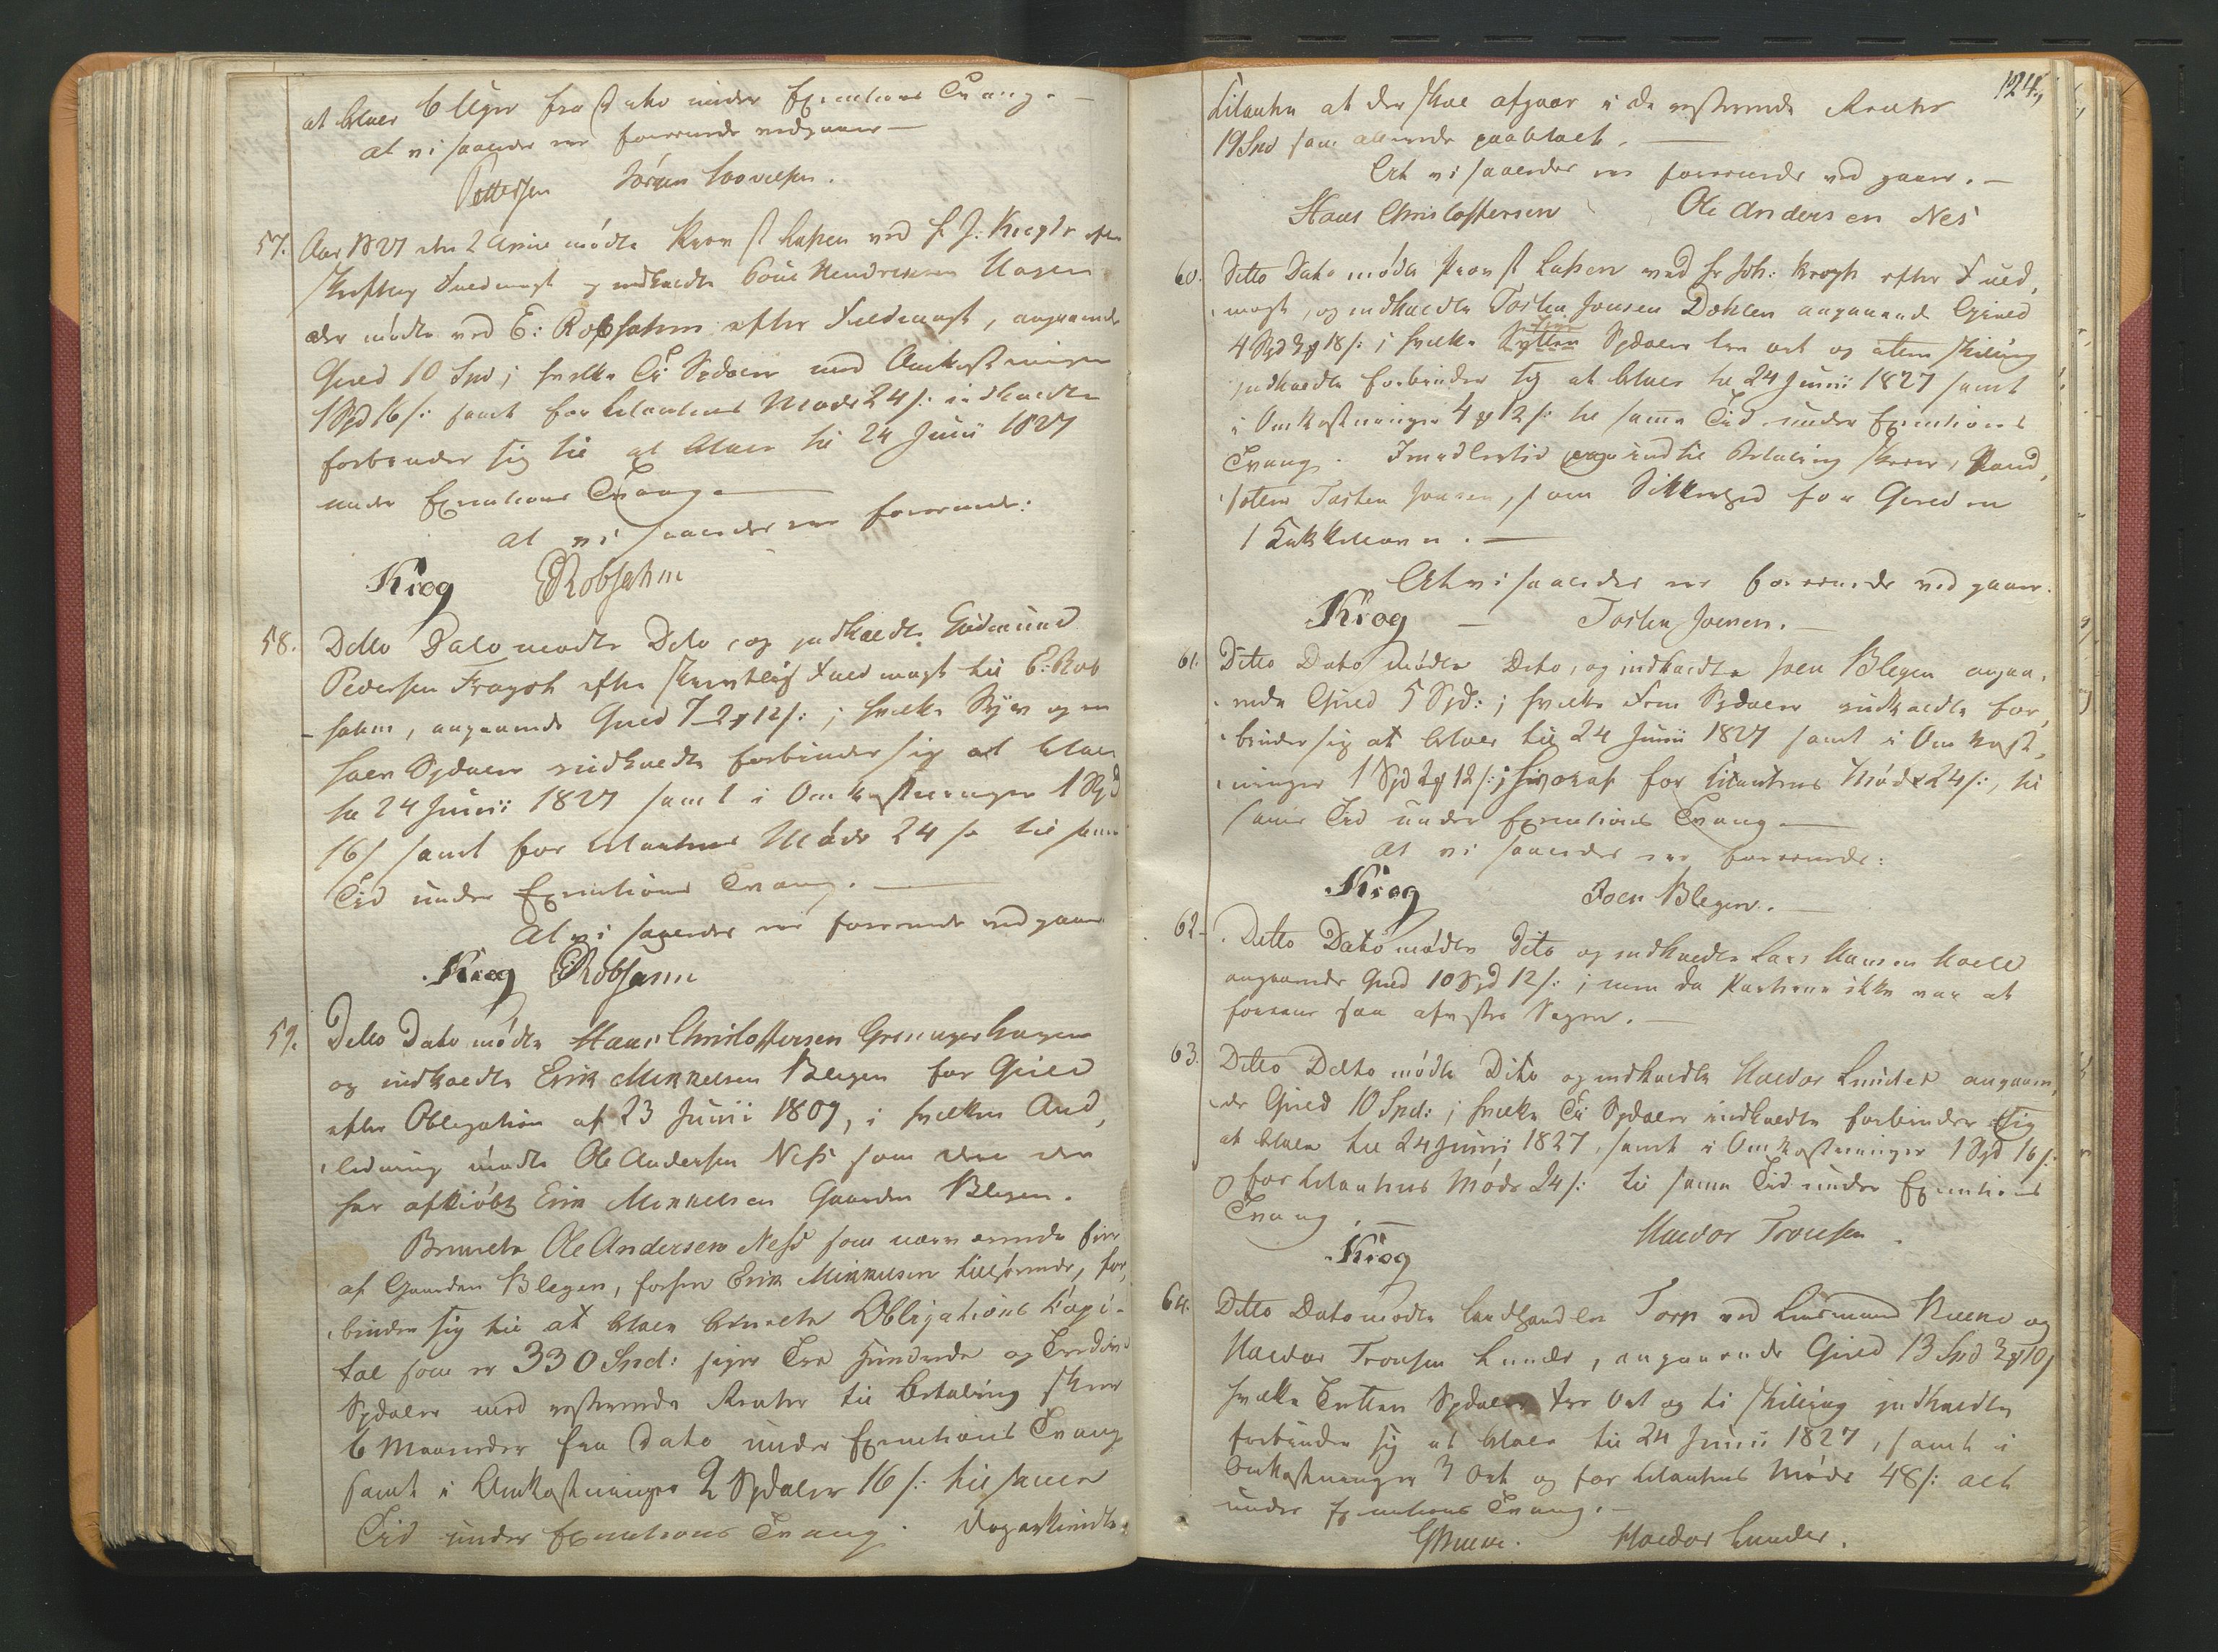 at betale 6 Uger fra Dato under Executions Tvang. —
at vi saaledes ere forenende vedgaaer —
Pettersen Jørgen
57. Aar 1827 den 2 April mødte Provst Lassen ved Hr J. Krogh efter
skriftlig Fuldmagt og indkaldte Poul Hendriksen Hagen
der mødte ved E: Robsahm efter Fuldmagt, angaaende
Gield 10 Spd; hvilke Ti Spdaler med Omkostninger
1 Spd 16 s: samt for Citantens Møde 24 s: indkaldte
forbinder sig til at betale til 24 Junii 1827
under Executions Tvang —
at vi saaledes ere forenende:
Krog ERobsahm
58. Ditto Dato mødte Dito, og indkaldte Gudmund
Pedersen Fragot efter skriftlig Fuldmagt til E: Rob
sahm, angaaende Gield 7-2 ort 12 s: ; hvilke Syv og en
halv Spdaler indkaldte forbinder sig at betale
til 24 Junii 1827 samt i Omkostninger 1 Spd
16 s samt for Citantens Møde 24 s til samme
Tid under Executions Tvang. —
At vi saaledes ere forenende vedgaaer
Krog ERobsahm
59. Ditto Dato mødte Hans Christoffersen Grønnerhagen
og indkaldte Erik Mikkelsen Blegen for Gield
efter Obligation af 23 Junii 1809, i hvilken And,
ledning mødte Ole Andersen Ness som den der
har afkiøbt Erik Mikkelsen Gaarden Blegen.
Bemeldte Ole Andersen Ness som nærværende Eier
af Gaarden Blegen, forhen Erik Mikkelsen tilhørende, for,
binder sig til at betale bemeldte Obligations Capi-
tal som er 330 Spd: siger Tre Hundrede og Tredive
Spdaler med resterende Renter til Betaling skeer
6 Maaneder fra Dato under Executions Tvang
samt i Omkostninger 2 Spdaler 16 s: til samme
Tid under Executions Tvang. Dog erkiendte
124,
Citanten at der skal afgaae i de resterende Renter
19 Spd som allerede er betalt. —
At vi saaledes ere forenende ved gaaer. —
Hans Christoffersen Ole Andersen Nes
60. Ditto Dato mødte Provst Lassen ved Hr Joh: Krogh efter Fuld,
magt, og indkaldte Tosten Joensen Døhlen angaaende Gield
4 Spd 3 ort 18 s: ; hvilke fire Spdaler tre ort og atten skilling
indkaldte forbinder sig at betale til 24 Junii 1827 samt
i Omkostninger 4 ort 12 s: til samme Tid under Executions
Tvang. Imidlertid og indtil Betaling skeer, Pand,
sætter Tosten Joensen, som Sikkerhed for Gielden
1 Kakkelovn. —
At vi saaledes ere forenende ved gaaer.
Krog — Tosten Joensen. —
61. Ditto Dato mødte Dito, og indkaldte Joen Blegen angaa,
ende Gield 5 Spd: ; hvilke Fem Spdaler indkaldte for,
binder sig at betale til 24 Junii 1827 samt i Omkost,
ninger 1 Spd 2 ort 12 s: ; hvoraf for Citantens Møde 24 s:, til
samme Tid under Executions Tvang —
At vi saaledes ere forenende:
Krog Joen Blegen. —
62. Ditto Dato mødte Dito og indkaldte Lars Hansen
angaaende Gield 10 Spd 12 s: ; men da Parterne ikke var at
forene saa afvistes Sagen. —
63. Ditto Datto mødte Dito og indkaldte Haldor Lunder angaaen,
de Gield 10 Spd: ; hvilke Ti Spdaler indkaldte forbinder sig
at betale til 24 Junii 1827, samt i Omkostninger 1 Spd 16 s:
og for Citantens Møde 24 s: til samme Tid under Executions
Tvang. —
Krog Haldor Tronsen
64. Ditto Dato mødte Landhandler Torp ved Lensmand og
Haldor Tronsen Lunde, angaaende Gield 13 Spd 3 ort 10 s
hvilke Tretten Spdaler tre Ort og ti skilling indkaldte
forbinder sig at betale til 24 Junii 1827, samt i
Omkostninger 3 Ort og for Citantens Møde 48 s: alt
under Executions Tvang. —
Haldor Lunder.